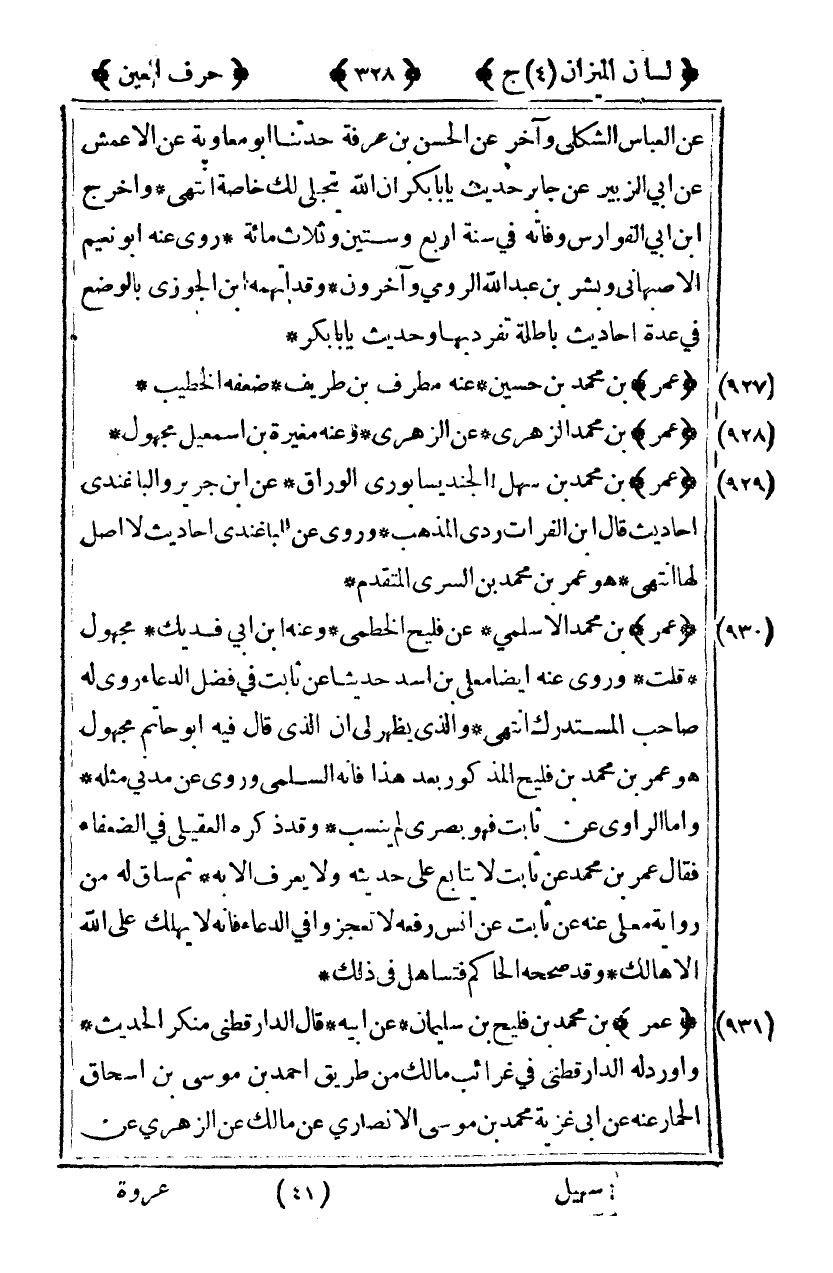 ﴿ لسان الميزان (٤) ج ﴾ ﴿ ٣٢٨ ﴾ ﴿ حرف العين ﴾
عن العباس الشكلى وآخر عن الحسن بن عرفة حدثنا ابو معاوية عن الاعمش
عن ابي الزبير عن جابر حديث يابابكر ان الله تجلى لك خاصة انتهى * واخرج
ابن ابي الفوارس وفاته في سنة اربع وستين وثلاث مائة * روى عنه ابو نعيم
الاصبهانى وبشر بن عبد الله الرومي وآخرون * وقد اتهمه ابن الجوزى بالوضع
في عدة احاديث باطلة تفرد بها وحديث يابابكر *
(٩٢٧) ﴿ عمر ﴾ بن محمد بن حسين * عنه مطرف بن طريف * ضعفه الخطيب *
(٩٢٨) ﴿ عمر ﴾ بن محمد الزهرى * عن الزهرى * وعنه مغيرة بن اسمعيل مجهول *
(٩٢٩) ﴿ عمر ﴾ بن محمد بن سهل الجنديسابورى الوراق * عن ابن جرير والباغندى
احاديث قال ابن الفرات ردى المذهب * وروى عن الباغندى احاديث لا اصل
لها انتهى * هو عمر بن محمد بن السرى المتقدم *
(٩٣٠) ﴿ عمر ﴾ بن محمد الاسلمي * عن فليح الخطمى * وعنه ابن ابي فديك * مجهول
* قلت * وروى عنه ايضا معلى بن اسد حديثا عن ثابت في فضل الدعاء روى له
صاحب المستدرك انتهى * والذى يظهر لى ان الذى قال فيه ابو حاتم مجهول
هو عمر بن محمد بن فليح المذكور بعد هذا فانه السلمى وروى عن مدني مثله *
واما الراوى عن ثابت فهو بصرى لم ينسب * وقد ذكره العقيلى في الضعفاء
فقال عمر بن محمد عن ثابت لا يتابع على حديثه ولا يعرف الا به * ثم ساق له من
رواية معلى عنه عن ثابت عن انس رفعه لا تعجزوا في الدعاء فانه لا يهلك على الله
الا هالك * وقد صححه الحاكم فتساهل فى ذلك *
(٩٣١) ﴿ عمر ﴾ بن محمد بن فليح بن سليمان * عن ابيه * قال الدارقطنى منكر الحديث *
واورد له الدارقطنى في غرائب مالك من طريق احمد بن موسى بن اسحاق
الحمار عنه عن ابى غزية محمد بن موسى الانصاري عن مالك عن الزهري عن
سهيل (٤١) عروة